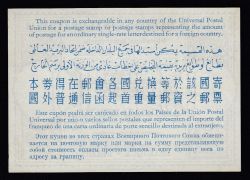 This coupon is exchangeable in any country of the Universal Postal
Union for a postage stamp or postage stamps representing the amount
of postage for an ordinary single-rate letter destined for a foreign country.
本券得在郵會各國兌換等於該國寄
國外普通信函起重量郵資之郵票
Este cupón podrá ser canjeado en todos los Países de la Unión Postal
Universal por uno o varios sellos postales que representen el importe del
franqueo de una carta ordinaria de porte sencillo destinada al extranjero.
Этот купон во всех странах Всемирного Почтового Союза обмени-
вается на почтовую марку или марки на сумму представляющую
собой стоимость оплаты простого письма в одну единицу веса по
адресу за границу.